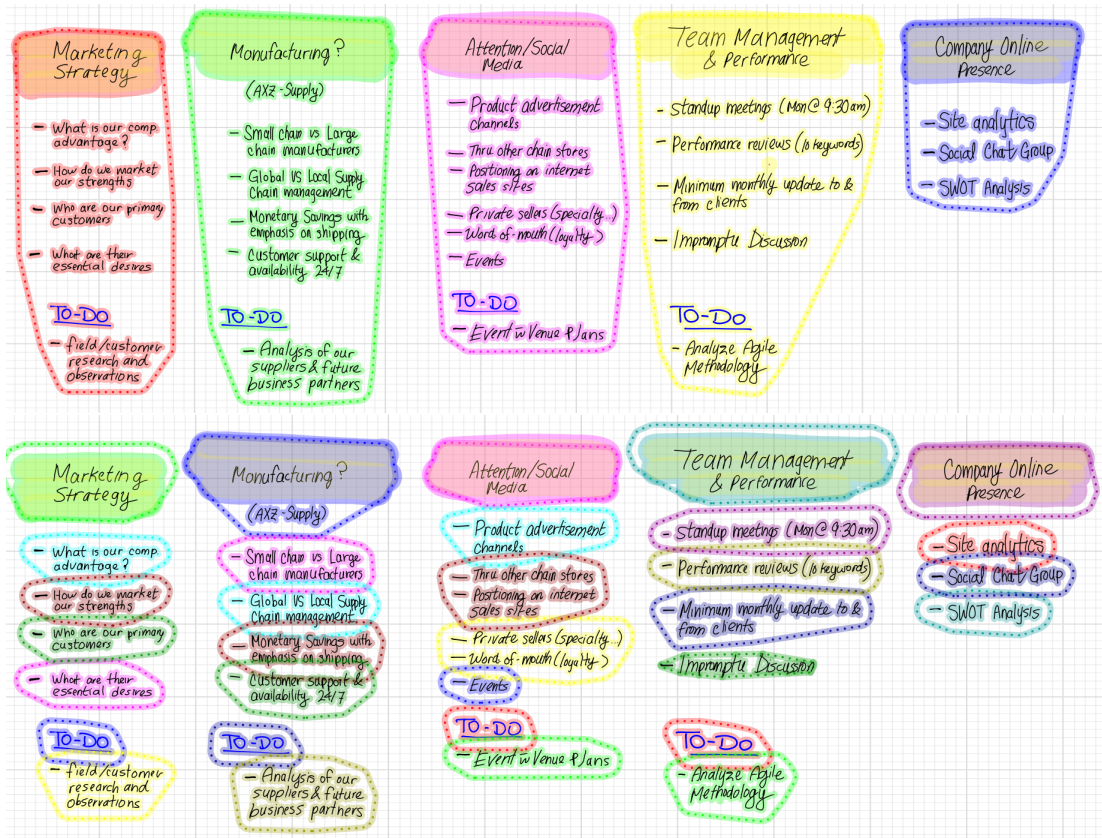 Marketing
Strategy
- What is our comp.
advantage?
- How do we market
our strengths
- Who are our primary
customers
- What are their
essential desires
TO-DO
- field/customer
research and
observations
Manufacturing?
(AXZ-Supply)
- Small chain vs Large
chain manufacturers
- Global VS Local Supply
Chain management
- Monetary Savings with
emphasis on shipping
- Customer support &
availability 24/7
TO-DO
- Analysis of our
suppliers & future
business partners
Attention/Social
Media
- Product advertisement
channels
- Thru other chain stores
- Positioning on internet
sales sites
- Private sellers (specialty...)
- Word of-mouth (loyalty>)
- Events
TO-DO
- Event w Venue Plans
Team Management
& Performance
- Standup meetings (Mon@ 9:30am)
- Performance reviews (10 keywords)
- Minimum monthly update to &
from clients
- Impromptu Discussion
TO-DO
- Analyze Agile
Methodology
Company Online
Presence
- Site analytics
- Social Chat Group
- SWOT Analysis
Marketing
Strategy
- What is our comp.
advantage?
- How do we market
our strengths
- Who are our primary
customers
- What are their
essential desires
TO-DO
- field/customer
research and
observations
Manufacturing?
(AXZ-Supply)
- Small chain vs Large
chain manufacturers
- Global VS Local Supply
Chain management
- Monetary Savings with
emphasis on shipping
- Customer support &
availability 24/7
TO-DO
- Analysis of our
suppliers & future
business partners
Attention/Social
Media
- Product advertisement
channels
- Thru other chain stores
- Positioning on internet
sales sites
- Private sellers (specialty...)
- Word of-mouth (loyalty>)
- Events
TO-DO
- Event w Venue Plans
Team Management
& Performance
- Standup meetings (Mon@ 9:30am)
- Performance reviews (10 keywords)
- Minimum monthly update to &
from clients
- Impromptu Discussion
TO-DO
- Analyze Agile
Methodology
Company Online
Presence
- Site analytics
- Social Chat Group
- SWOT Analysis